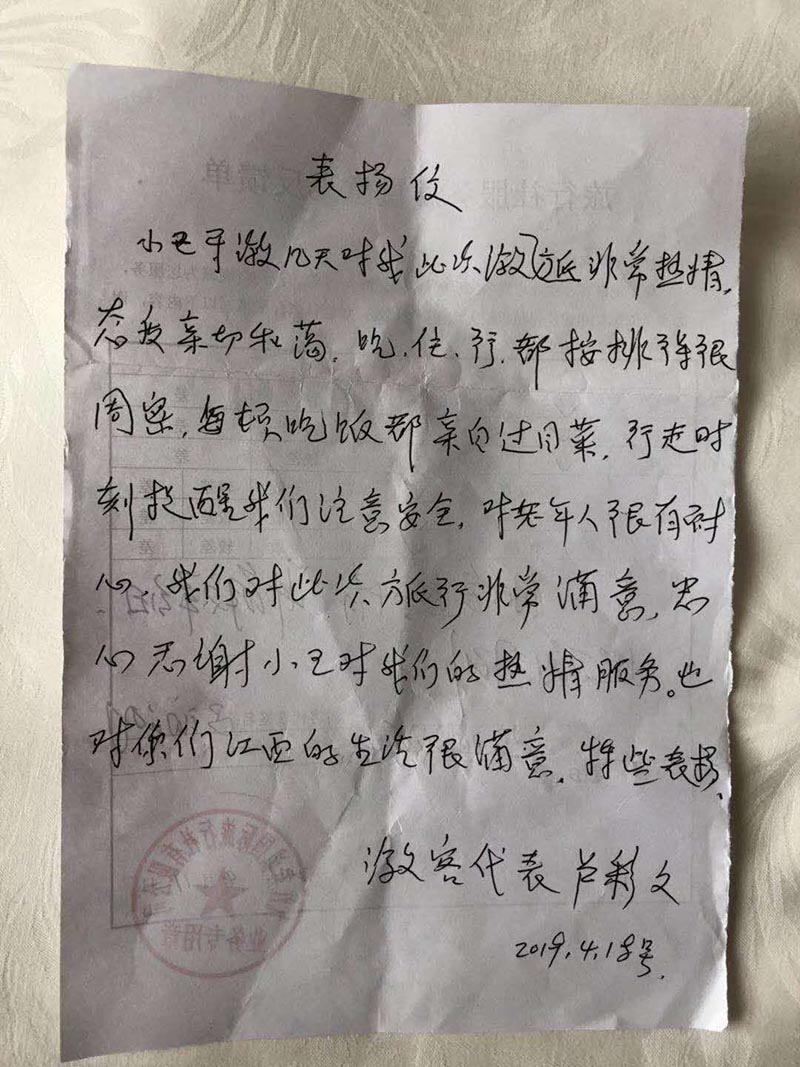 表扬信
小王导游几天对我此次游旅非常热情,
态度亲切和蔼,吃、住、行,都按排得很
周密,每顿吃饭都亲自过目菜,行走时
刻提醒我们注意安全,对老年人很有耐
心,我们对此次旅行非常满意,忠
心感谢小王对我们的热情服务。也
对你们江西的生活很满意,特些表扬,
游客代表 卢彩文
2019.4.18号.
业务专用章